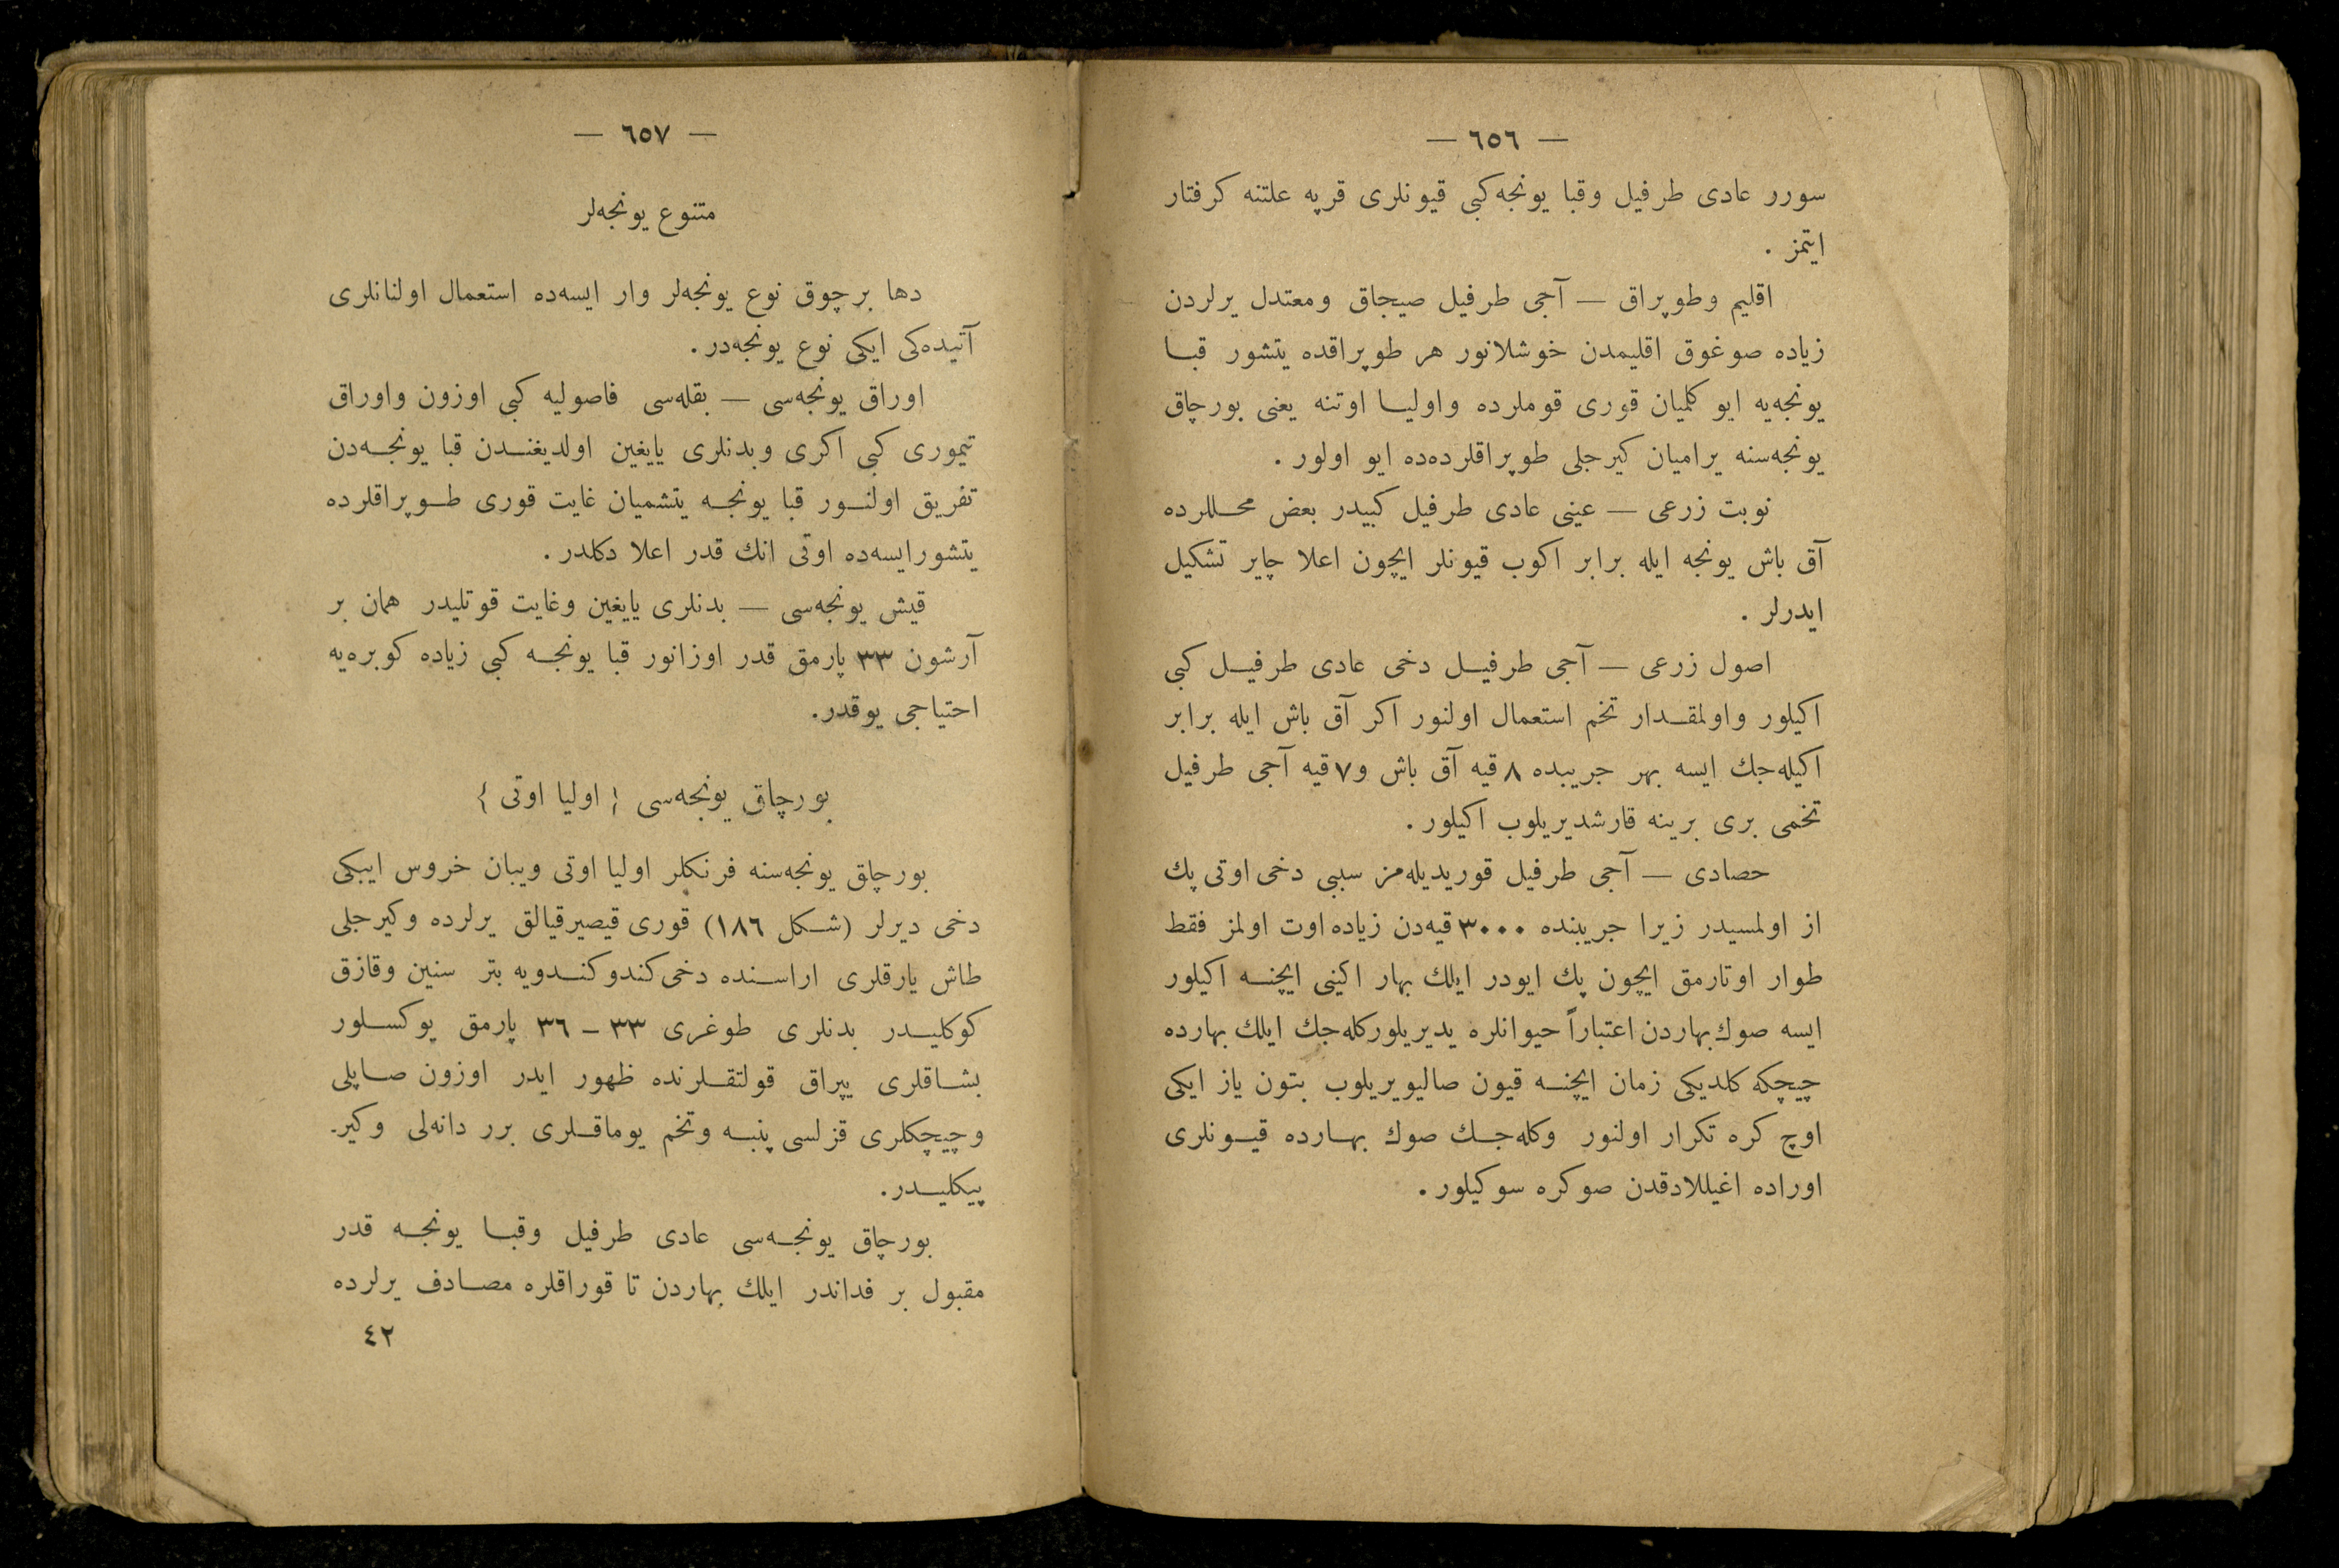 — ٦٥٦ —
سورر عادی طرفیل وقبا یونجه‌کبی قیونلری قرپه علتنه کرفتار
ایتمز .
اقلیم وطوپراق — آجی طرفیل صیجاق ومعتدل یرلردن
زیاده صوغوق اقلیمدن خوشلانور هر طوپراقده یتشور قبا
یونجه‌یه ایو کلمیان قوری قوملرده واولیا اوتنه یعنی بورچاق
یونجه‌سنه یرامیان کیرجلی طوپراقلرده‌ده ایو اولور .
نوبت زرعی — عینی عادی طرفیل کبیدر بعض محللرده
آق باش یونجه ایله برابر اکوب قیونلر ایچون اعلا چایر تشکیل
ایدرلر .
اصول زرعی — آجی طرفیل دخی عادی طرفیل کبی
اکیلور واولمقدار تخم استعمال اولنور اکر آق باش ایله برابر
اکیله‌جك ایسه بهر جریبده ٨ قیه آق باش و٧ قیه آجی طرفیل
تخمی بری برینه قارشدیریلوب اکیلور .
حصادی — آجی طرفیل قوریدیله‌مز سببی دخی اوتی پك
از اولمسیدر زیرا جریبنده ٣٠٠٠ قیه‌دن زیاده اوت اولمز فقط
طوار اوتارمق ایچون پك ایودر ایلك بهار اکینی ایچنه اکیلور
ایسه صوك بهاردن اعتباراً حیوانلره یدیریلور کله‌جك ایلك بهارده
چیچکه کلدیکی زمان ایچنه قیون صالیویریلوب بتون یاز ایکی
اوچ کره تکرار اولنور وکله‌جك صوك بهارده قیونلری
اوراده اغیللادقدن صوکره سوکیلور .
— ٦٥٧ —
متنوع یونجه‌لر
دها برچوق نوع یونجه‌لر وار ایسه‌ده استعمال اولنانلری
آتیده‌کی ایکی نوع یونجه‌در .
اوراق یونجه‌سی — بقله‌سی فاصولیه کبی اوزون واوراق
تیموری کبی اکری وبدنلری یایغین اولدیغندن قبا یونجه‌دن
تفریق اولنور قبا یونجه یتشمیان غایت قوری طوپراقلرده
یتشور ایسه‌ده اوتی انك قدر اعلا دکلدر .
قیش یونجه‌سی — بدنلری یایغین وغایت قوتلیدر همان بر
آرشون ٣٣ پارمق قدر اوزانور قبا یونجه کبی زیاده کوبره‌یه
احتیاجی یوقدر .
بورچاق یونجه‌سی { اولیا اوتی }
بورچاق یونجه‌سنه فرنکلر اولیا اوتی ویبان خروس ایبکی
دخی دیرلر (شکل ١٨٦) قوری قیصیر قیالق یرلرده وکیرجلی
طاش یارقلری اراسنده دخی کندو کندویه بتر سنین وقازق
کوکلیدر بدنلری طوغری ٣٣ – ٣٦ پارمق یوکسلور
بشاقلری یپراق قولتقلرنده ظهور ایدر اوزون صاپلی
وچیچکلری قزلسی پنبه وتخم یوماقلری برر دانه‌لی وکیر-
پیکلیدر .
بورچاق یونجه‌سی عادی طرفیل وقبا یونجه قدر
مقبول بر فداندر ایلك بهاردن تا قوراقلره مصادف یرلرده
٤٢